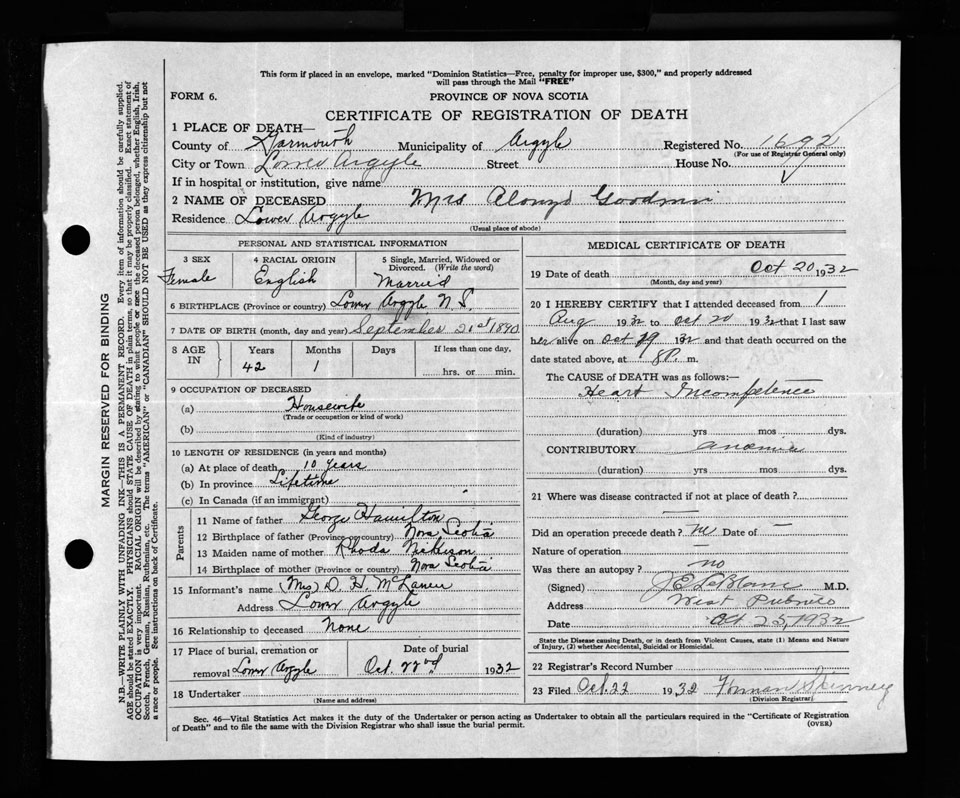 This form if placed in an envelope, marked "Dominion Statistics—Free, penalty for improper use, $300," and properly addressed
will pass through the Mail "FREE"
FORM 6. PROVINCE OF NOVA SCOTIA
CERTIFICATE OF REGISTRATION OF DEATH
1 PLACE OF DEATH—
County of Yarmouth Municipality of Argyle Registered No. 1692
(For use of Registrar General only)
City or Town Lower Argyle Street House No.
If in hospital or institution, give name
2 NAME OF DECEASED Mrs Alonzo Goodwin
Residence Lower Argyle
(Usual place of abode)
PERSONAL AND STATISTICAL INFORMATION
3 SEX 4 RACIAL ORIGIN 5 Single, Married, Widowed or
Divorced. (Write the word)
Female English Married
6 BIRTHPLACE (Province or country) Lower Argyle N.S.
7 DATE OF BIRTH (month, day and year) September 21st 1890
8 AGE IN Years Months Days If less than one day,
42 1 hrs. or min.
9 OCCUPATION OF DECEASED
(a) Housewife
(Trade or occupation or kind of work)
(b)
(Kind of industry)
10 LENGTH OF RESIDENCE (in years and months)
(a) At place of death 10 years
(b) In province Lifetime
(c) In Canada (if an immigrant)
Parents
11 Name of father George Hamilton
12 Birthplace of father (Province or country) Nova Scotia
13 Maiden name of mother Rhoda
14 Birthplace of mother (Province or country) Nova Scotia
15 Informant's name (Mrs) D. H. McLaren
Address Lower Argyle
16 Relationship to deceased None
17 Place of burial, cremation or Date of burial
removal Lower Argyle Oct. 22nd 1932
18 Undertaker
(Name and address)
MEDICAL CERTIFICATE OF DEATH
19 Date of death Oct 20 1932
(Month, day and year)
20 I HEREBY CERTIFY that I attended deceased from 1
Aug 1932 to Oct 20 1932 that I last saw
her alive on Oct 19 1932 and that death occurred on the
date stated above, at m.
The CAUSE OF DEATH was as follows:—
Heart Incompetence
(duration) yrs mos dys.
CONTRIBUTORY anemia
(duration) yrs mos dys.
21 Where was disease contracted if not at place of death?
—
Did an operation precede death? no Date of —
Nature of operation —
Was there an autopsy? no
(Signed) J E LeBlanc M.D.
Address West Pubnico
Date Oct 25, 1932
State the Disease causing Death, or in death from Violent Causes, state (1) Means and Nature
of Injury, (2) whether Accidental, Suicidal or Homicidal.
22 Registrar's Record Number
23 Filed Oct. 22 1932 Spinney
(Division Registrar)
Sec. 46—Vital Statistics Act makes it the duty of the Undertaker or person acting as Undertaker to obtain all the particulars required in the "Certificate of Registration
of Death" and to file the same with the Division Registrar who shall issue the burial permit. (OVER)
MARGIN RESERVED FOR BINDING
N.B.—WRITE PLAINLY WITH UNFADING INK—THIS IS A PERMANENT RECORD. Every item of information should be carefully supplied.
AGE should be stated EXACTLY. PHYSICIANS should STATE CAUSE OF DEATH in plain terms, so that it may be properly classified. Exact statement of
OCCUPATION is very important. RACIAL ORIGIN will be described by stating to what people or race the deceased person belonged, whether English, Irish,
Scotch, French, German, Russian, Ruthenian, etc. The terms "AMERICAN" or "CANADIAN" SHOULD NOT BE USED as they express citizenship but not
a race or people. See instructions on back of Certificate.